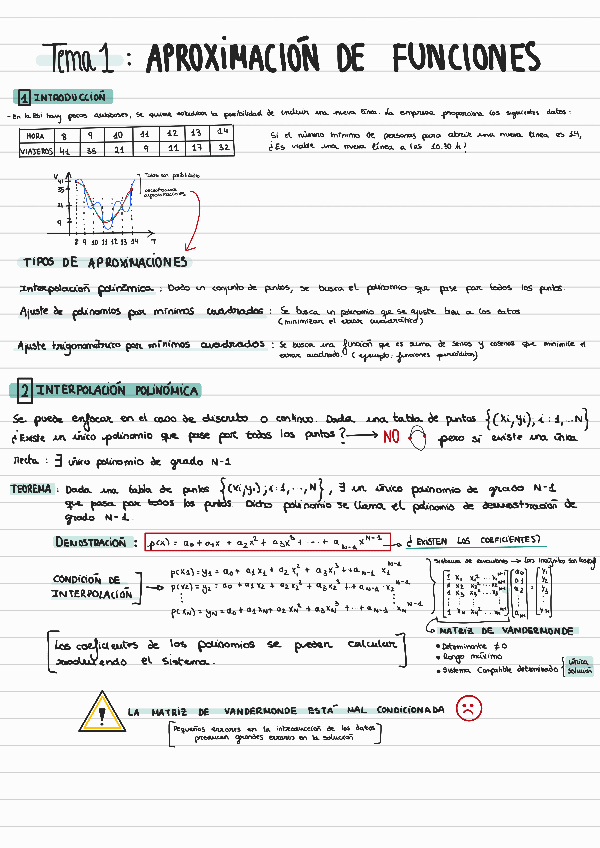 Tema 1: APROXIMACIÓN DE FUNCIONES
1 INTRODUCCIÓN
- En la Rbi hay pocos autobuses, se quiere estudiar la posibilidad de incluir una nueva línea. La empresa proporciona los siguientes datos:
HORA 8 9 10 11 12 13 14
VIAJEROS 41 35 21 9 11 17 32
Si el número mínimo de personas para abrir una nueva línea es 15,
¿Es viable una nueva línea a las 10:30 h?
V
41
35
21
9
8 9 10 11 12 13 14 T
Todas son posibles
aproximaciones
TIPOS DE APROXIMACIONES
Interpolación polinómica: Dado un conjunto de puntos, se busca el polinomio que pase por todos los puntos.
Ajuste de polinomios por mínimos cuadrados: Se busca un polinomio que se ajuste bien a los datos
(minimizar el error cuadrático)
Ajuste trigonométrico por mínimos cuadrados: Se busca una función que es suma de senos y cosenos que minimice el
error cuadrado. (ejemplo: funciones periódicas)
2 INTERPOLACIÓN POLINÓMICA
Se puede enfocar en el caso de discreto o continuo. Dada una tabla de puntos {(xi,yi), i:1,...N}
¿Existe un único polinomio que pase por todos los puntos? → NO pero sí existe una única
recta: ∃ único polinomio de grado N-1
TEOREMA: Dada una tabla de puntos {(xi,yi), i:1,..,N}, ∃ un único polinomio de grado N-1
que pasa por todos los puntos. Dicho polinomio se llama el polinomio de demostración de
grado N-1.
DEMOSTRACIÓN: p(x) = a0 + a1x + a2x² + a3x³ + ... + aN-1 x^N-1 → ¿EXISTEN LOS COEFICIENTES?
CONDICIÓN DE
INTERPOLACIÓN
p(x1) = y1 = a0 + a1x1 + a2x1² + a3x1³ + ... + aN-1 · x1^N-1
p(x2) = y2 = a0 + a1x2 + a2x2² + a3x2³ + ... + aN-1 · x2^N-1
p(xN) = yN = a0 + a1xN + a2xN² + a3xN³ + ... + aN-1 xN^N-1
Sistema de ecuaciones → Las incógnitas son las aj
1 x1 x1² ... x1^N-1 a0 y1
1 x2 x2² ... x2^N-1 a1 y2
1 x3 x3² ... x3^N-1 a2 y3
1 xN xN² ... xN^N-1 aN-1 yN
MATRIZ DE VANDERMONDE
• Determinante ≠ 0
• Rango máximo
• Sistema Compatible determinado {única
solución
Los coeficientes de los polinomios se pueden calcular
resolviendo el sistema.
LA MATRIZ DE VANDERMONDE ESTÁ MAL CONDICIONADA
Pequeños errores en la introducción de los datos
producen grandes errores en la solución